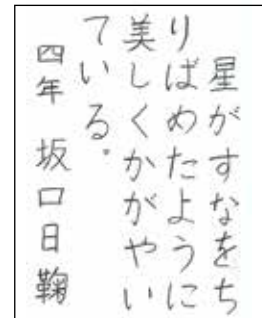 星がすなをち
りばめたように
美しくかがやい
ている。
四年 坂口日鞠